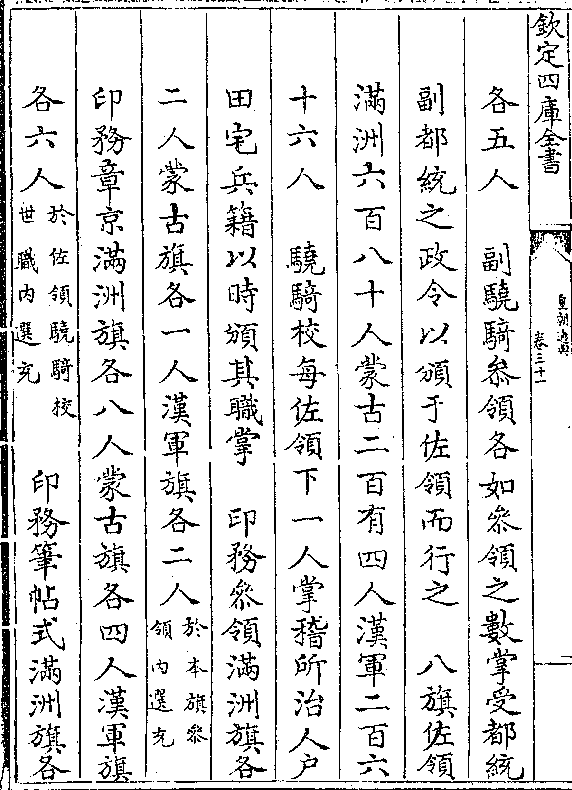 欽定四庫全書
皇朝通典
卷三十一
各五人　副驍騎參領各如參領之數掌受都統
副都統之政令以頒于佐領而行之　八旗佐領
滿洲六百八十人蒙古二百有四人漢軍二百六
十六人　驍騎校每佐領下一人掌稽所治人户
田宅兵籍以時頒其職掌　印務參領滿洲旗各
二人蒙古旗各一人漢軍旗各二人於本旗參
領内選充
印務章京滿洲旗各八人蒙古旗各四人漢軍旗
各六人於佐領驍騎校
世職内選充　印務筆帖式滿洲旗各